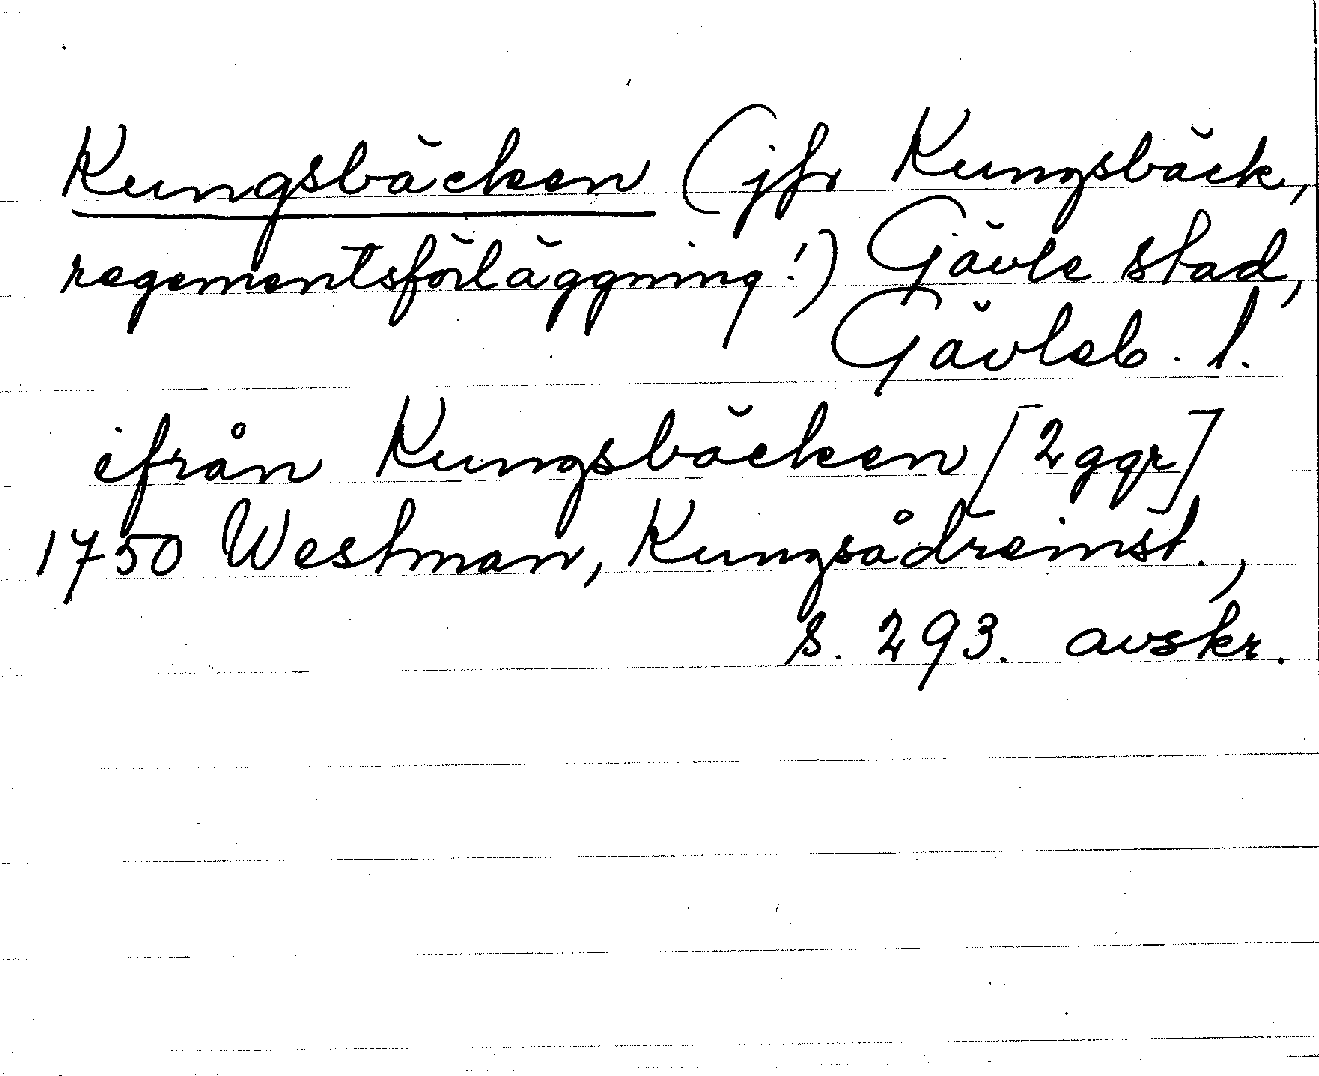 Kungsbäcken (jfr Kungsbäck,
regementsförläggning!) Gävle stad,
Gävleb. l.
ifrån Kungsbäcken [2 ggr]
1750 Westman, Kungsådreinst.,
s. 293. avskr.